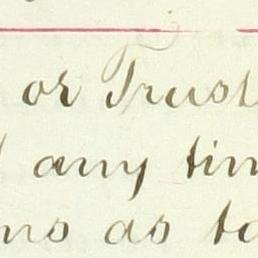 or Trust
any tim
ns as to